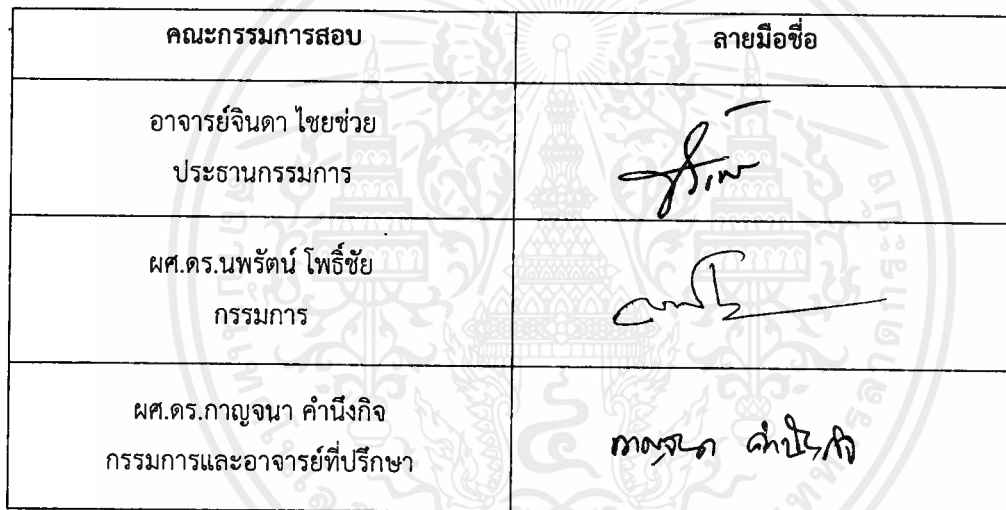 คณะกรรมการสอบ ลายมือชื่อ
อาจารย์จินดา ไชยช่วย
ประธานกรรมการ
ผศ.ดร.นพรัตน์ โพธิ์ชัย
กรรมการ
ผศ.ดร.กาญจนา คำนึงกิจ
กรรมการและอาจารย์ที่ปรึกษา
กาญจนา คำนึงกิจ